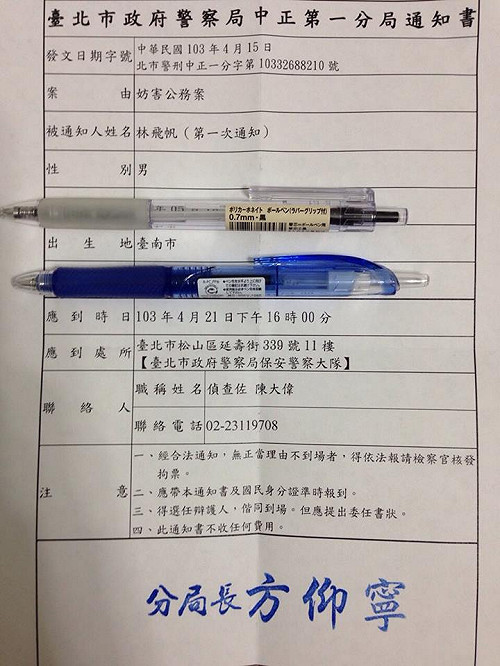 臺北市政府警察局中正第一分局通知書
發文日期字號 中華民國103年4月15日
北市警刑中正一分字第10332688210號
案由 妨害公務案
被通知人姓名 林飛帆（第一次通知）
性別 男
ポリカーボネイト ボールペン(ラバーグリップ付)
0.7mm・黒
出生地 臺南市
應到時日 103年4月21日下午16時00分
應到處所 臺北市松山區延壽街339號11樓
【臺北市政府警察局保安警察大隊】
聯絡人 職稱姓名 偵查佐 陳大偉
聯絡電話 02-23119708
注意 一、經合法通知，無正當理由不到場者，得依法報請檢察官核發
拘票。
二、應帶本通知書及國民身分證準時報到。
三、得選任辯護人，偕同到場。但應提出委任書狀。
四、此通知書不收任何費用。
分局長 方仰寧